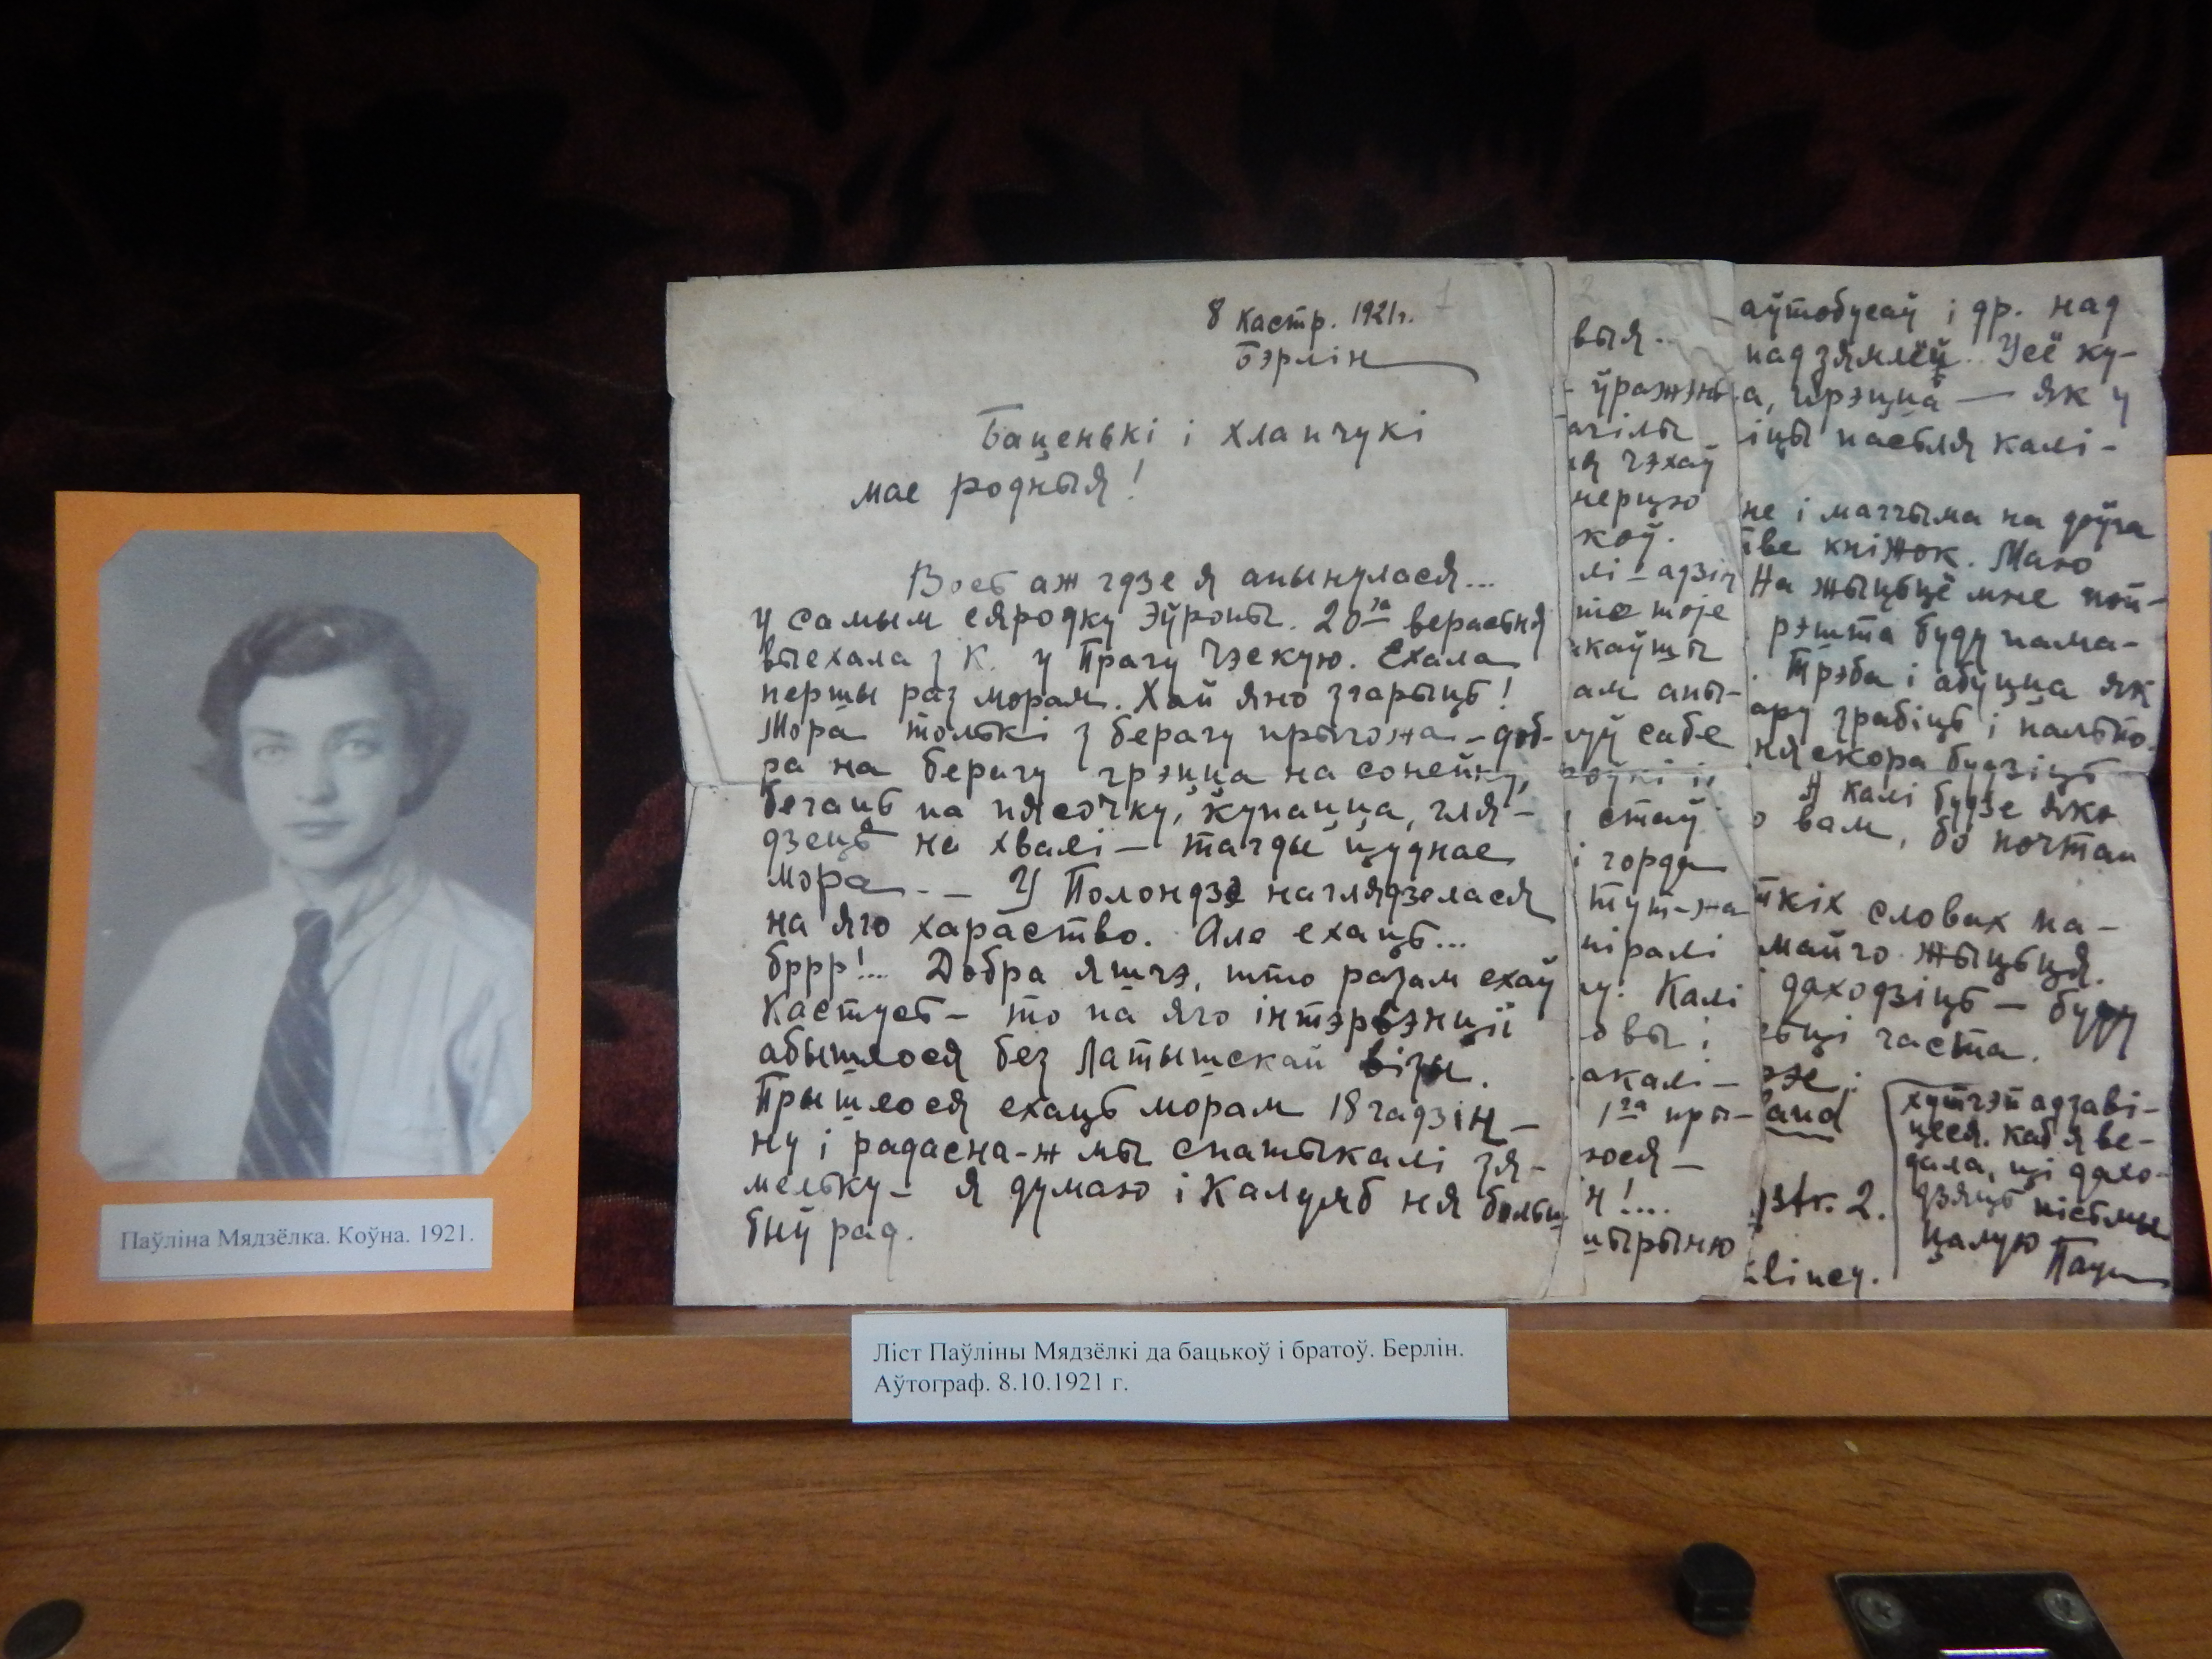 Паўліна Мядзёлка. Коўна. 1921.
8 Кастр. 1921 г.
Бэрлін
Баценькі і хлапчукі
мае родныя!
Вось аж гдзе я апынулася...
у самым сяродку Эўропы. 20га верасьня
выехала з К. у Прагу Чэскую. Ехала
першы раз морам. Хай яно згарыць!
Мора толькі з берагу прыгожа – доб-
ра на берагу грэцца на сонейку,
бегаць па пясочку, купацца, гля-
дзець на хвалі – тагды цуднае
мора. – У Полондзе наглядзелася
на яго хараство. Але ехаць...
бррр!... Добра яшчэ, што разам ехаў
Кастусь – то па яго інтэрвэнціі
абышлося без Латышскай візы.
Прышлося ехаць морам 18 гадзін –
ну і радасна-ж мы спатыкалі зя-
мельку – я думаю і Калумб ня больш
быў рад.
2
выя..
ўражэнь
ачілы
чэхаў
нерцю
коў.
лі – адзін
што тое
каўшы
ам апы-
уў сабе
стаў
і горда
Тут-жа
піралі
у. Калі
овы і
акалі –
1га пры-
юся –
н!....
шырыню
аўтобусаў і др. над
пад зямлёй. Усё ку-
а, грэцца — як у
іцы пасьля калі-
не і магчыма на друга
тве кніжок. Маю
На жыцьцё мне пой-
рэшта буду пама-
. Трэба і абуцца як
ару зрабіць і пальто.
ня скора будзіць
А калі будзе яко
о вам, бо почтай
ткіх словах па-
майго жыцьця.
даходзіць – буду
ьці часта.
рэе:
land
str. 2.
lincy.
хутчэй адзаві-
цеся, каб я ве-
дала, ці дахо-
дзяць пісьмы
Цалую
Паўл
Ліст Паўліны Мядзёлкі да бацькоў і братоў. Берлін.
Аўтограф. 8.10.1921 г.